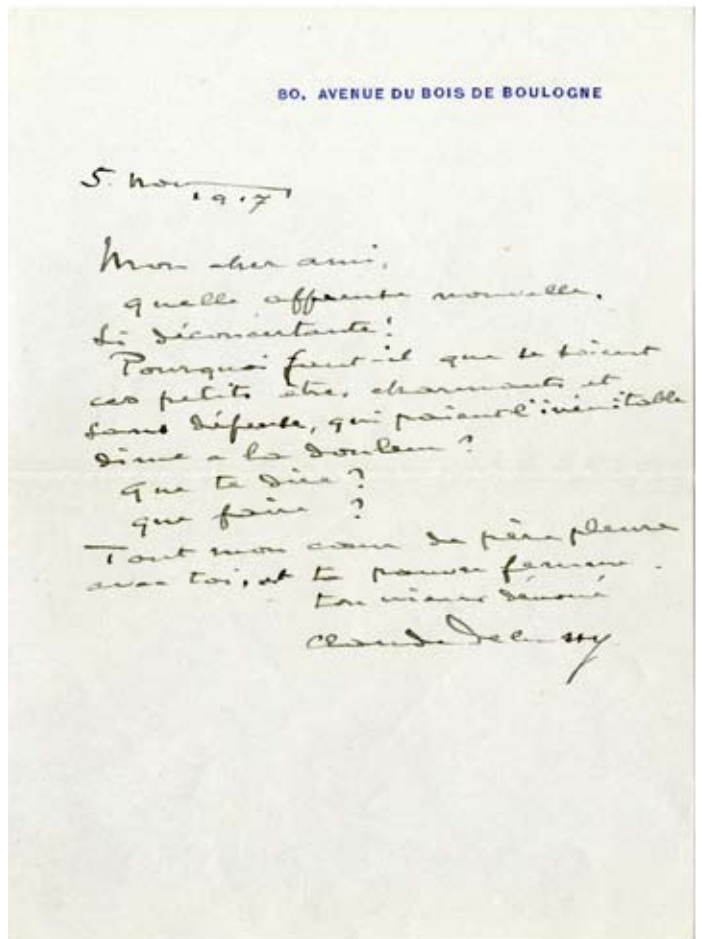 80, AVENUE DU BOIS DE BOULOGNE
5. Nov
1917
Mon cher ami,
quelle affreuse nouvelle.
Si déconcertante!
Pourquoi faut-il que se soient
ces petits être, charmants et
sans défense, qui paient l'inévitable
dîme a la douleur?
que te dire?
que faire ?
Tout mon cœur de père pleure
avec toi, et ta pauvre femme.
ton vieux dévoué
Claude Debussy